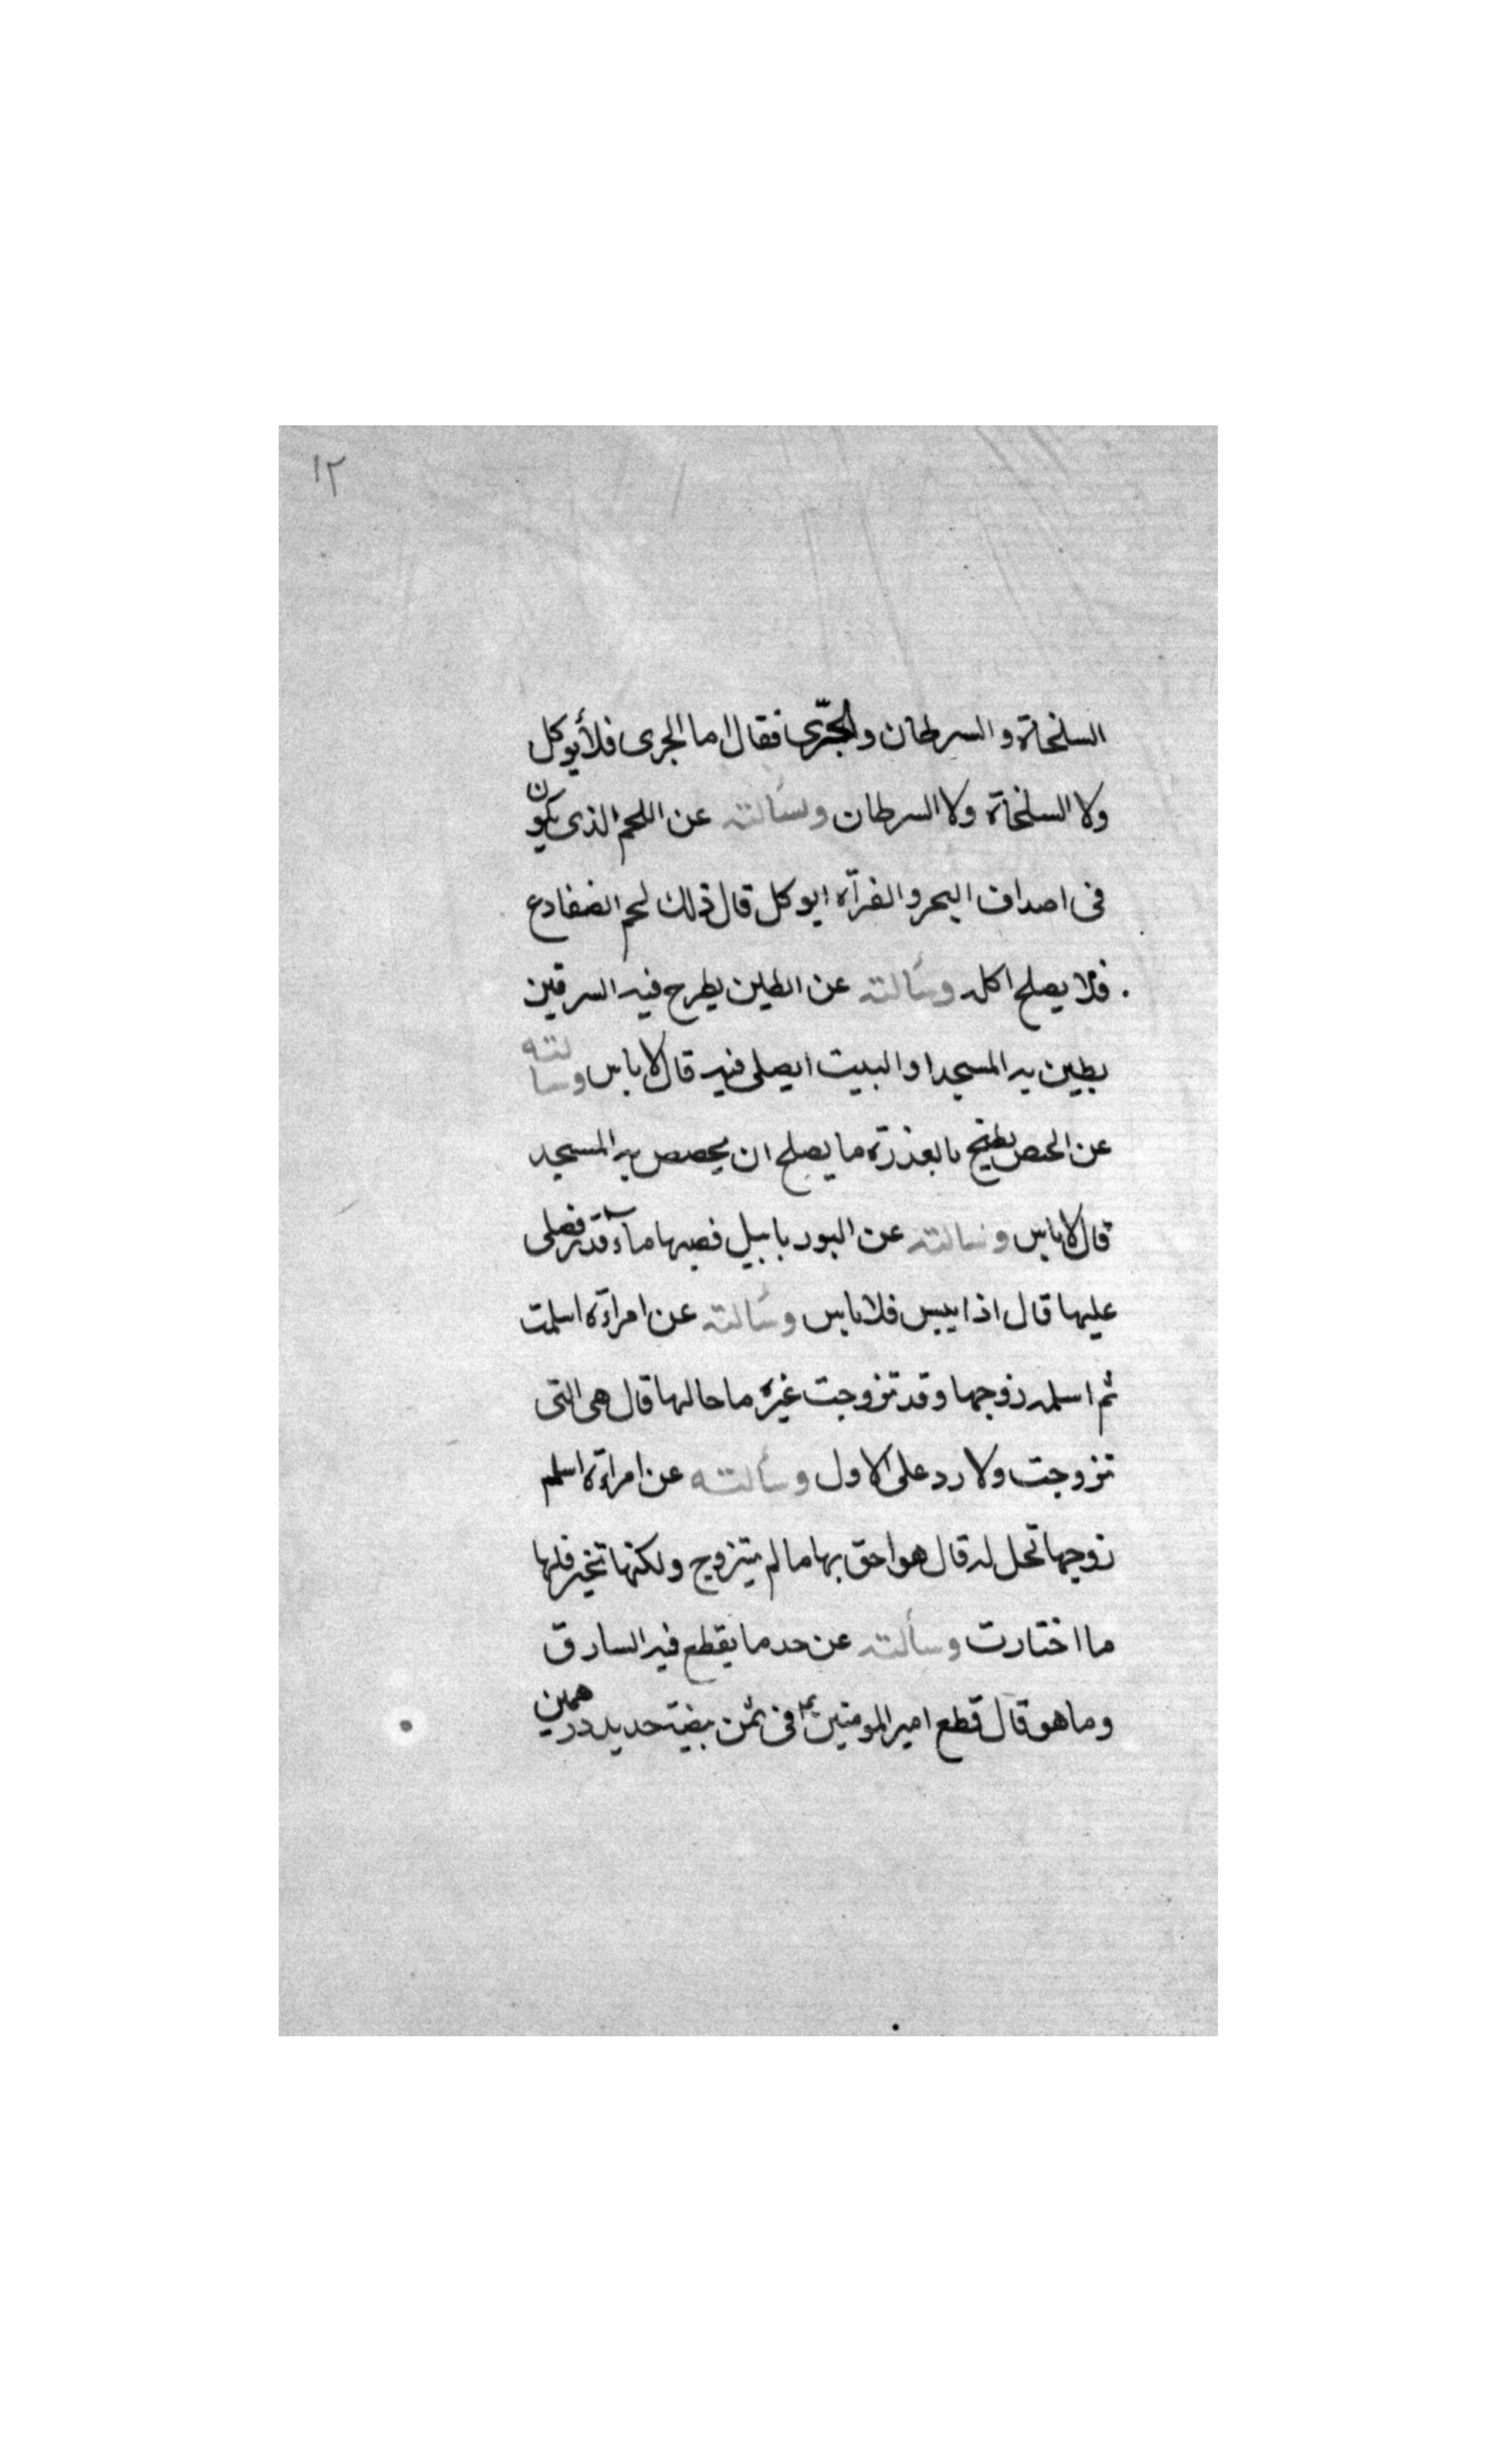 ١٢
السلخاة و السرطان والجرّى فقال اما الجرى فلا يوكل
ولا السلخاة ولا السرطان وسألته عن اللحم الذى يكون
فى اصداف البحر و الفرآه ايوكل قال ذلك لحم الضفادع
فلا يصلح اكله وسألته عن الطين يطرح فيه السرقين
يطين به المسجد او البيت ايصلى فيه قال لا باس وسالته
عن الحص يطبخ بالعذرة ما يصلح ان يحصص به المسجد
قال لا باس وسالته عن البور يا يبل قصبها مآء قذر فصلى
عليها قال اذا يبس فلا باس وسألته عن امراءة اسلمت
ثم اسلم زوجها وقد تزوجت غيره ما حالها قال هى التى
تزوجت ولا رد على الاول وسألته عن امراءة اسلم
زوجها تحل له قال هو احق بها ما لم يتزوج ولكنها تخير فلها
ما اختارت وسألته عن حد ما يقطع فيه السارق
وما هو قال قطع امير المومنين فى ثمن بيضة حديد درهمين